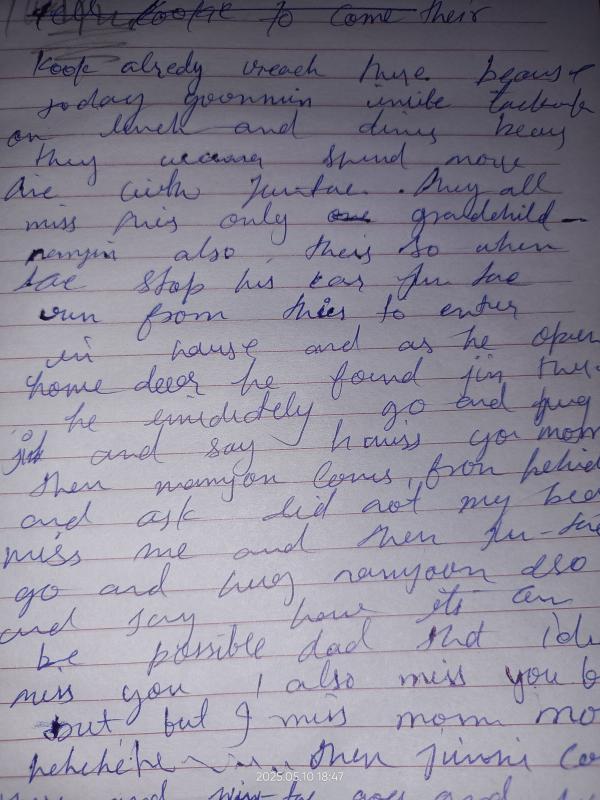 to come their
kook alredy reach there. because
today goonmin invite taekook
on lunch and diner beaus
they wanna spend more
time with Jun-tae. They all
miss this only grandchild
namjin also there so when
tae stop his car Jun tae
run from there to enter
in house and as he open
home door he found jin
he imidiately go and hug
jin and say I miss you mom
then namjoon coms from behind
and ask did not my bear
miss me and then Jun-tae
go and hug namjoon also
and say how its can
be possible dad that I do
miss you I also miss you b
but but I miss mom mo
hehehehe then jimni co
2025.05.10 18:47
and go and